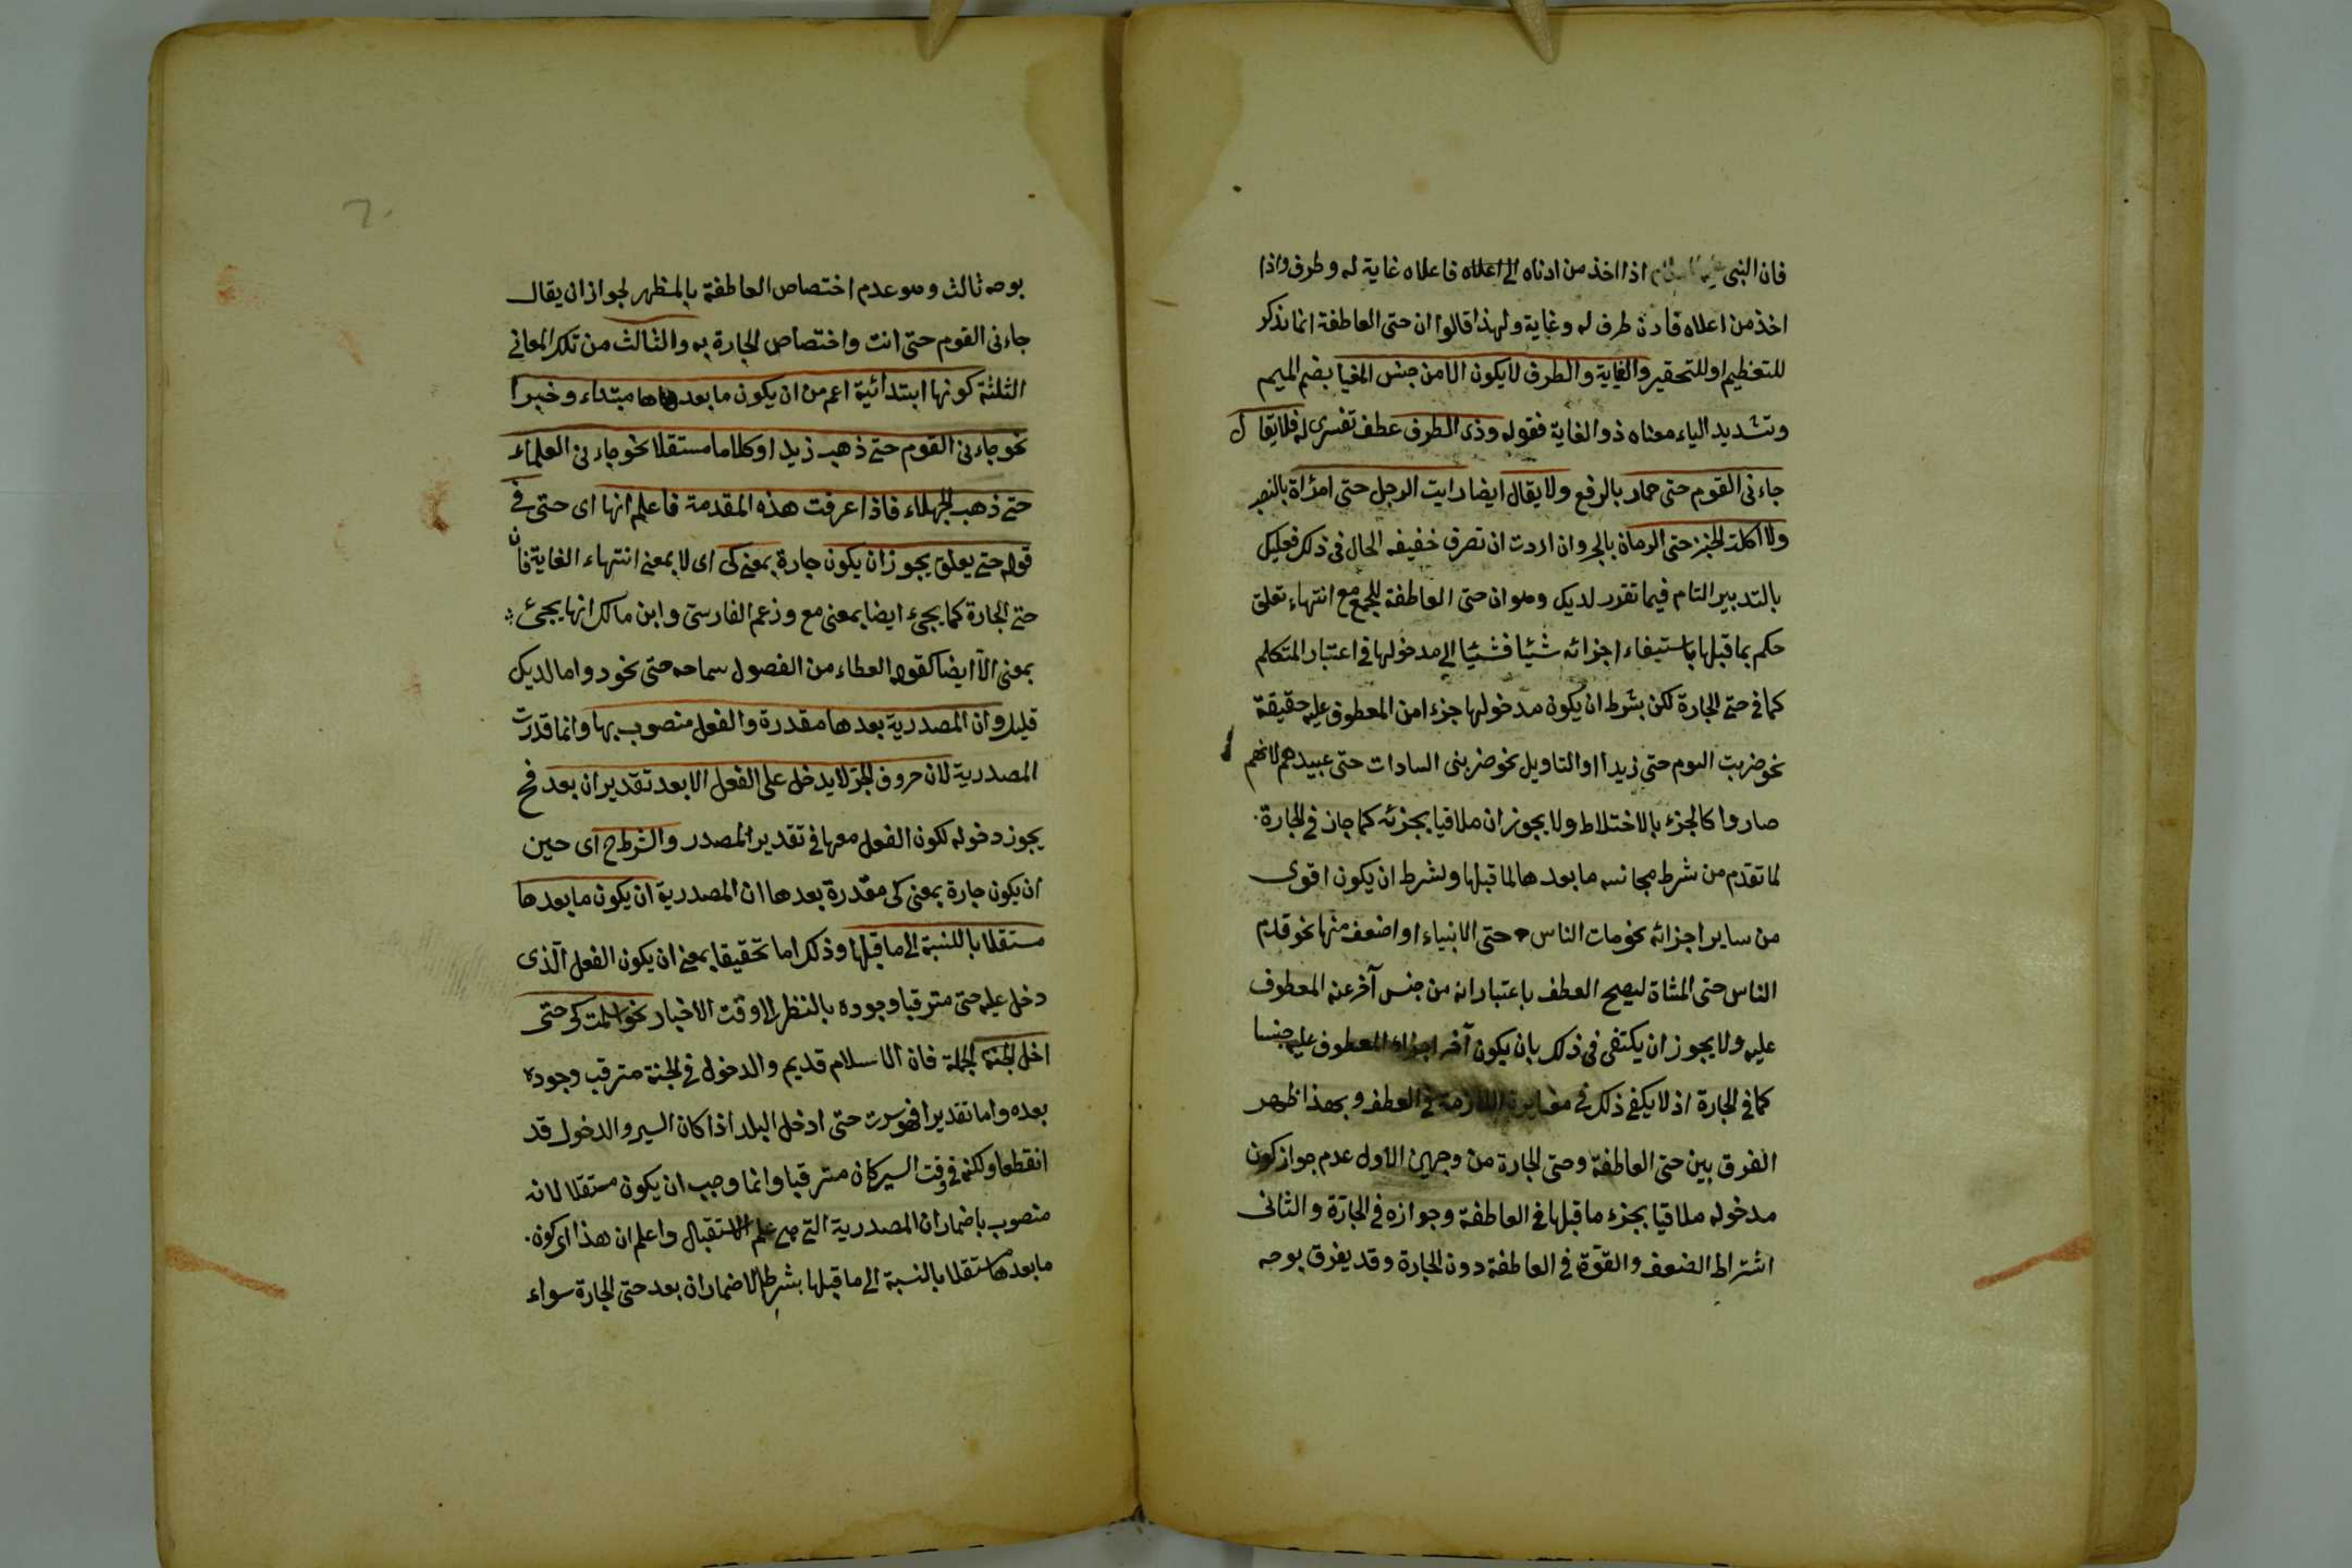 فان النبى عليه السلام اذا اخذ من ادناه الى اعلاه فاعلاه غاية له وطرف واذا
اخذ من اعلاه فادن طرف له وغاية ولهذا قالوا ان حتى العاطفة انما تذكر
للتعظيم او للتحقير والغاية والطرف لا يكون الا من جنس المغيا بضم الميم
وتشديد الياء معناه ذو الغاية فقوله وذى الطرف عطف تفسرى له فلا يقال
جاءنى القوم حتى حمار بالرفع ولا يقال ايضا رايت الرجل حتى امراة بالنصب
ولا اكلت الخبز حتى الرمان بالجر وان اردت ان تصرف خفيفه الحال فى ذلك فعليك
بالتدبير التام فيما تقرر لديك وهو ان حتى العاطفة للجمع مع انتهاء تعلق
حكم بما قبلها باستيفاء اجزائه شئيا فشئيا الى مدخولها فى اعتبار المتكلم
كما فى حتى الجارة لكن بشرط ان يكون مدخولها جزءا من المعطوف عليه حقيقة
نحو ضربت القوم حتى زيدا او التاويل نحو ضربنى السادات حتى عبيدهم لانهم
صاروا كالجزء بالاختلاط ولا يجوز ان ملاقيا بجزئه كما جاز فى الجارة
لما تقدم من شرط مجانسه ما بعدها لما قبلها وبشرط ان يكون اقوى
من ساير اجزائه نحو مات الناس حتى الانبياء او اضعف منها نحو قدم
الناس حتى المشاة ليصح العطف باعتبار انه من جنس آخر عنه المعطوف
عليه ولا يجوز ان يكتفى فى ذلك بان يكون آخر اجزاء المعطوف عليه جنسا
كما فى الجارة اذ لا يكفى ذلك فى مغايرة اللازمة فى العطف وبهذا ظهر
الفرق بين حتى العاطفة وحتى الجارة من وجهين الاول عدم جواز كون
مدخوله ملاقيا بجزء ما قبلها فى العاطفة وجوازه فى الجارّة والثانى
اشتراط الضعف والقوّة فى العاطفة دون الجارة وقد يفرق بوجه
بوجه ثالث وهو عدم اختصاص العاطفة بالمظهر لجواز ان يقال
جاءنى القوم حتى انت واختصاص الجارة به والثالث من تلك المعانى
الثلثة كونها ابتدائية اعم من ان يكون ما بعدها مبتداء وخبرا
نحو جاءنى القوم حتى ذهب زيد او كلاما مستقلا نحو جاءنى العلماء
حتى ذهب الجهلاء فاذا عرفت هذه المقدمة فاعلم انها اى حتى فى
قوله حتى يعلق يجوز ان يكون جارة بمعنى كى اى لا بمعنى انتهاء الغاية فان
حتى الجارة كما يجئ ايضا بمعنى مع وزعم الفارسى وابن مالك انها يجئ
بمعنى الّا ايضا كقوله العطاء من الفصول سماحه حتى نجود وما لديك
قليل وان المصدرية بعدها مقدرة والفعل منصوب بها وانما قدرت
المصدرية لان حروف الجرّ لا يدخل على الفعل الا بعد تقدير ان بعد فح
يجوز دخوله لكون الفعل معها فى تقدير المصدر والشرط ح اى حين
ان يكون جارة بمعنى كى مقدرة بعدها ان المصدرية ان يكون ما بعدها
مستقلا باالنسبة الى ما قبلها وذلك اما تحقيقا بمعنى ان يكون الفعل الّذى
دخل عليه حتى مترقبا وجوده بالنظر الى وقت الاخبار نحو اسلمت كى حتى
ادخل الجنة الجملة فان الاسلام قديم والدخول فى الجنة مترقب وجوده
بعده واما تقديرا نحو سرت حتى ادخل البلد اذا كان السير والدخول قد
انقطعا ولكنه فى وقت السير كان مترقبا وانما وجب ان يكون مستقلا لانه
منصوب باضمار ان المصدرية التى هى علم الاستقبال واعلم ان هذا اى كون
ما بعدها مستقلا بالنسبة الى ما قبلها بشرط الاضمار ان بعد حتى الجارة سواء